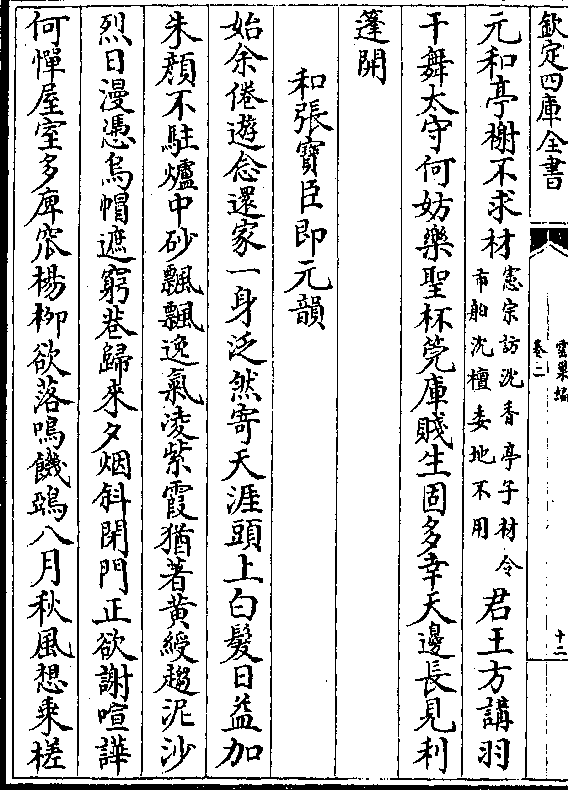 欽定四庫全書
雲巢編
卷二
十二
元和亭榭不求材
憲宗訪沈香亭子材令
市舶沈檀委地不用
君王方講羽
干舞太守何妨樂聖杯筦庫賤生固多幸天邊長見利
篷開
和張寶臣即元韻
始余倦遊念還家一身泛然寄天涯頭上白髮日益加
朱顏不駐爐中砂飄飄逸氣淩紫霞猶著黃綬趨泥沙
烈日漫憑烏帽遮窮巷歸來夕烟斜閉門正欲謝喧譁
何憚屋室多庳窊楊柳欲落鳴饑鵶八月秋風想乘槎